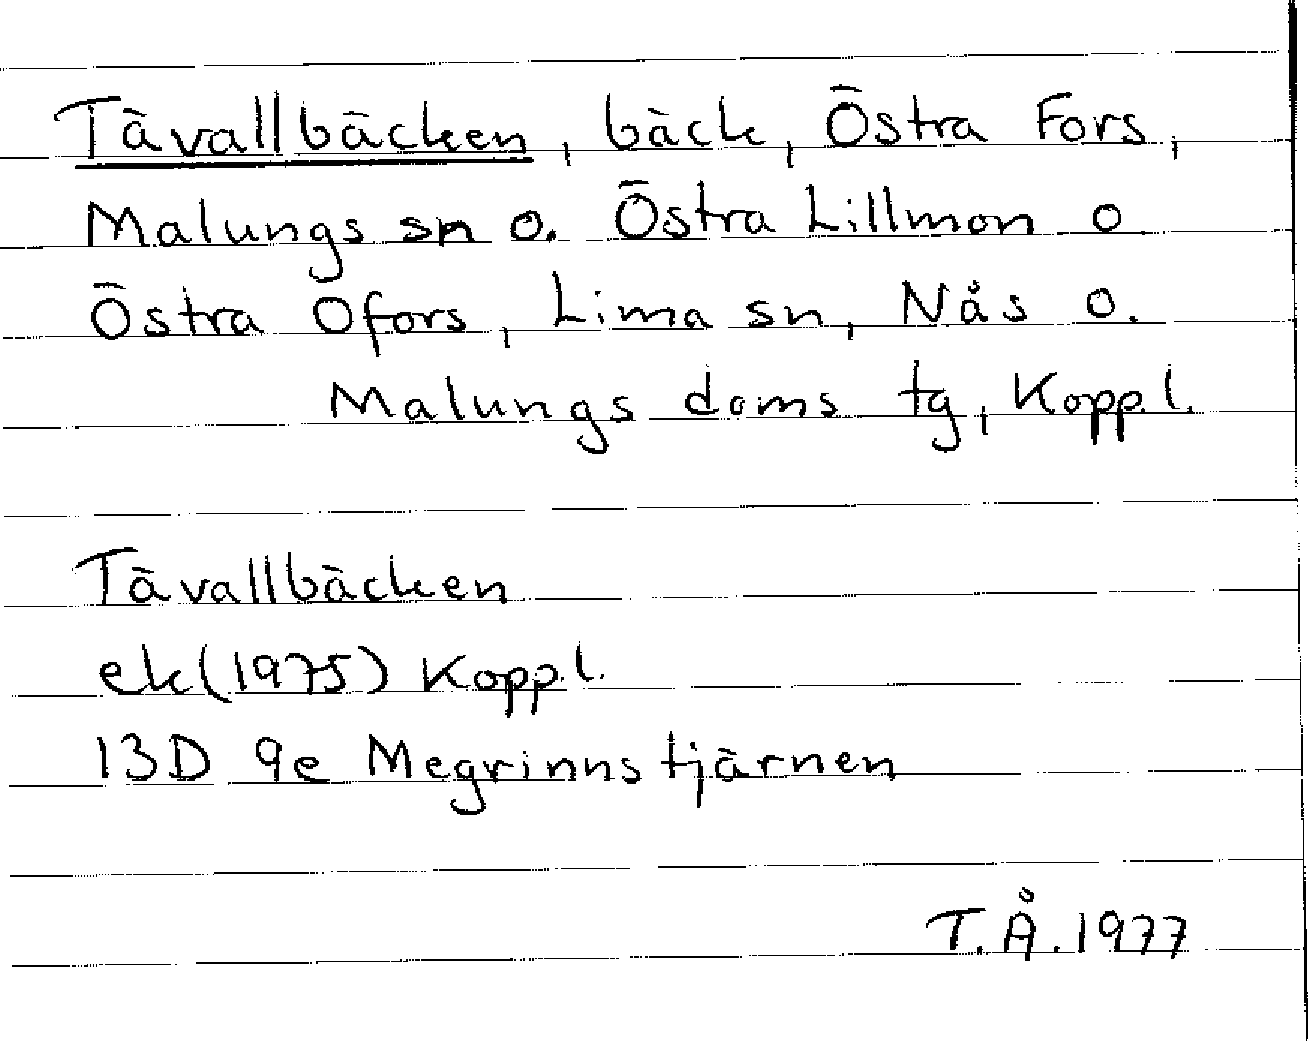 Tävallbäcken, bäck, Östra Fors,
Malungs sn o. Östra Lillmon o
Östra Ofors, Lima sn, Nås o.
Malungs doms tg, Koppl.
Tävallbäcken
ek(1975) Koppl.
13D 9e Megrinnstjärnen
T.Å.1977